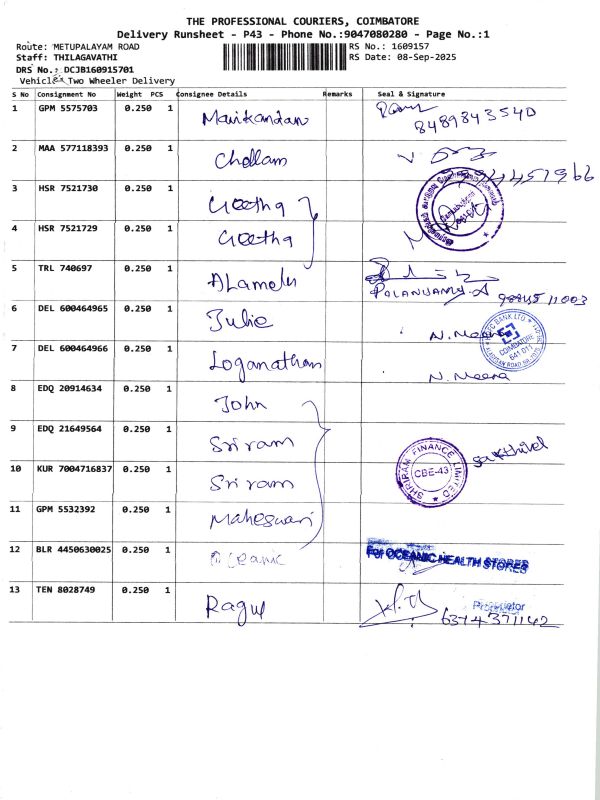 THE PROFESSIONAL COURIERS, COIMBATORE
Delivery Runsheet - P43 - Phone No.:9047080280 - Page No.:1
Route: METUPALAYAM ROAD RS No.: 1609157
Staff: THILAGAVATHI RS Date: 08-Sep-2025
DRS No.: DCJB160915701
Vehicle: Two Wheeler Delivery
S No Consignment No Weight PCS Consignee Details Remarks Seal & Signature
1 GPM 5575703 0.250 1 Manikandan 8489843540
2 MAA 577118393 0.250 1 Chellam
3 HSR 7521730 0.250 1 Geetha
4 HSR 7521729 0.250 1 Geetha
5 TRL 740697 0.250 1 ALamelu PALANISAMY.A
6 DEL 600464965 0.250 1 Julie N. Meena
HDFC BANK LTD.
COIMBATORE
641 011
7 DEL 600464966 0.250 1 Loganathan N. Meena
8 EDQ 20914634 0.250 1 John
9 EDQ 21649564 0.250 1 Sriram Sakthivel
SHRIRAM FINANCE LIMITED
CBE-43
10 KUR 7004716837 0.250 1 Sriram
11 GPM 5532392 0.250 1 Maheswari
12 BLR 4450630025 0.250 1 Oceanic For OCEANIC HEALTH STORES
13 TEN 8028749 0.250 1 Ragul Proprietor
6374371142